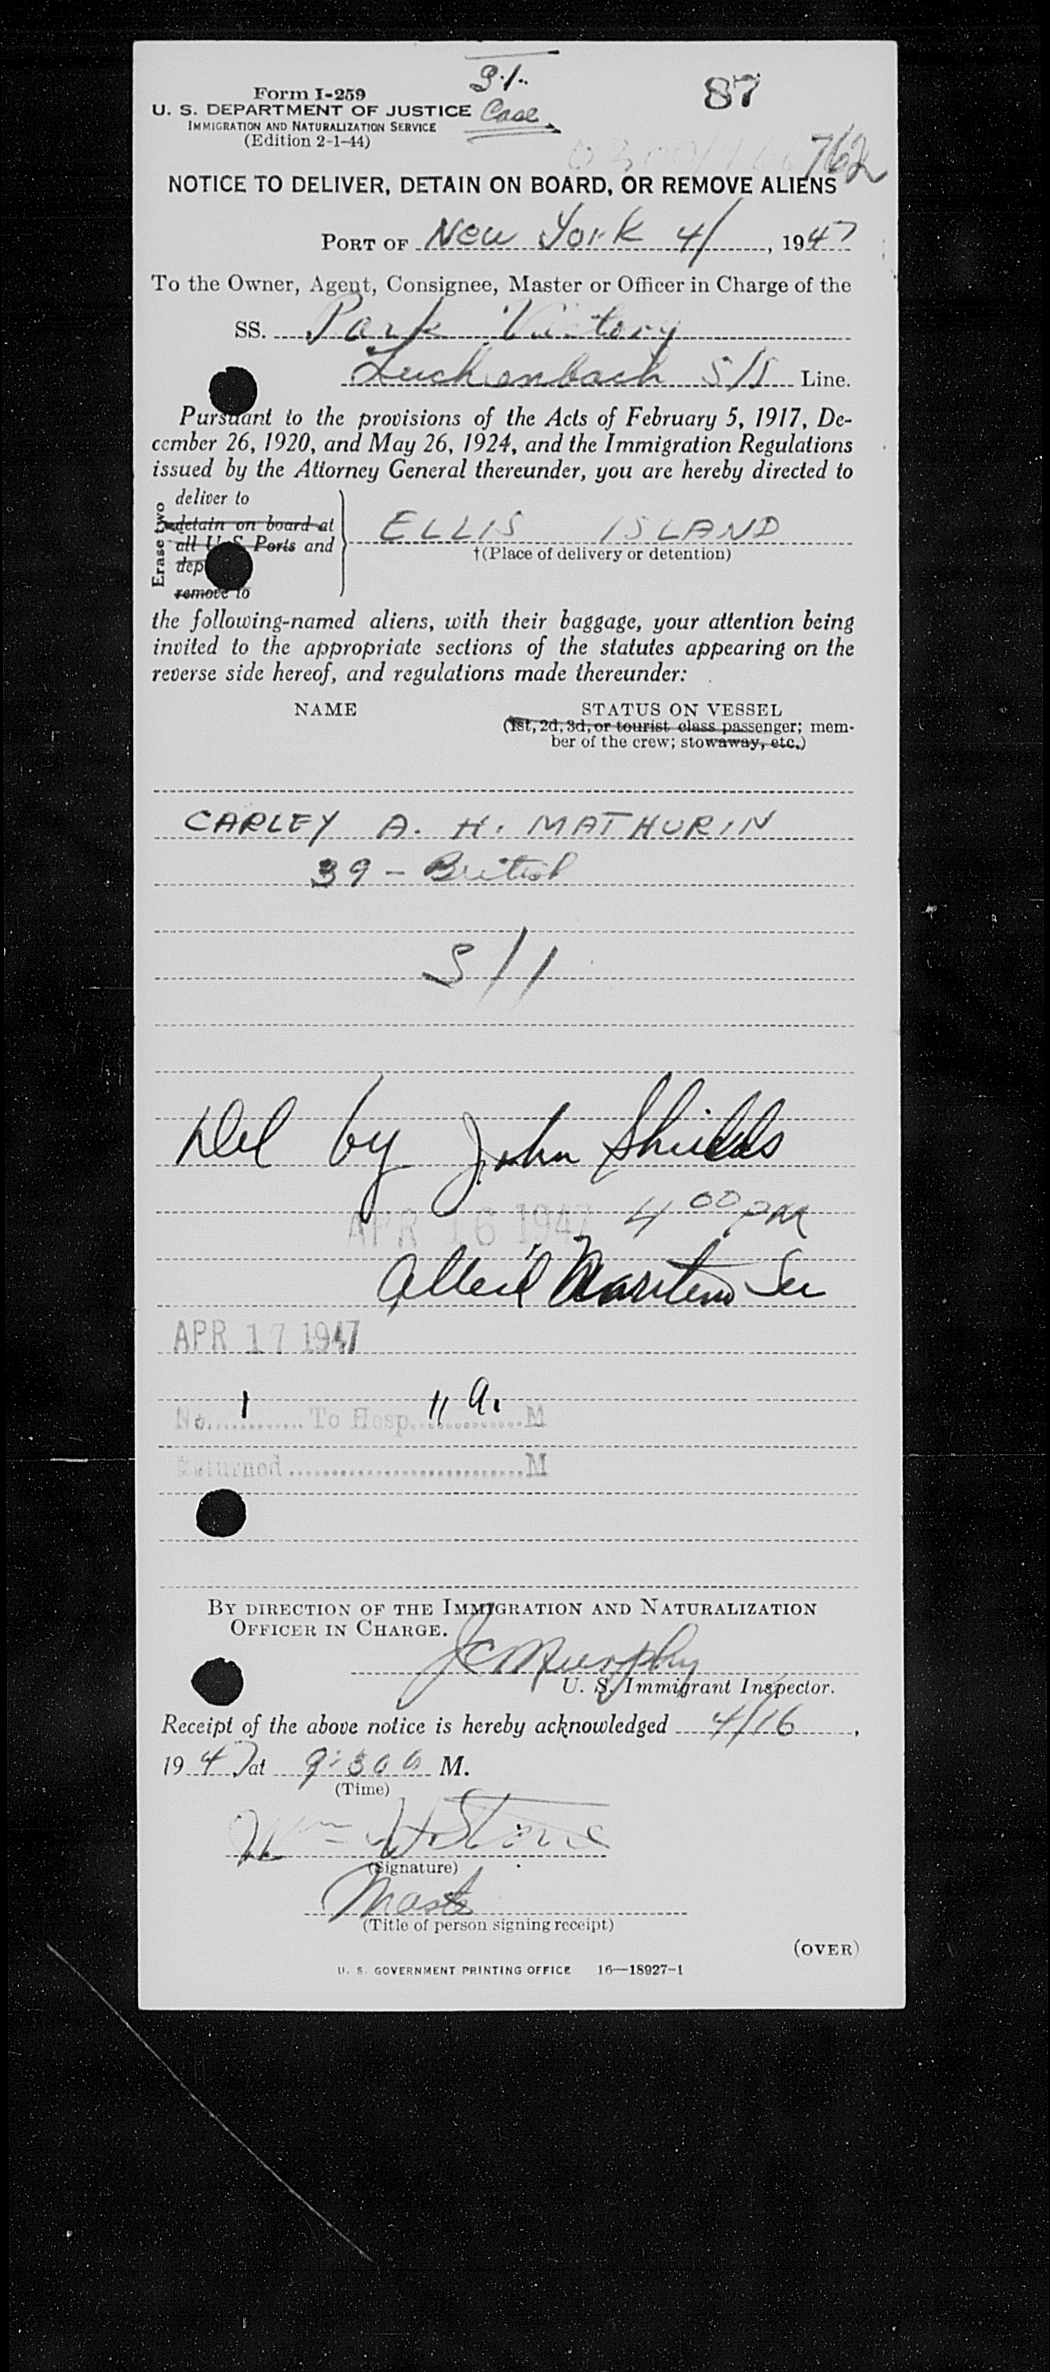 S/1.
Form I-259
U. S. DEPARTMENT OF JUSTICE
Case
87
IMMIGRATION AND NATURALIZATION SERVICE
(Edition 2-1-44)
762
NOTICE TO DELIVER, DETAIN ON BOARD, OR REMOVE ALIENS
PORT OF New York 4/, 1947
To the Owner, Agent, Consignee, Master or Officer in Charge of the
SS. Park Victory
Luckenbach S/S Line.
Pursuant to the provisions of the Acts of February 5, 1917, De-
cember 26, 1920, and May 26, 1924, and the Immigration Regulations
issued by the Attorney General thereunder, you are hereby directed to
Erase two
deliver to
detain on board at
all U. S. Ports and
dep
remove to
ELLIS ISLAND
†(Place of delivery or detention)
the following-named aliens, with their baggage, your attention being
invited to the appropriate sections of the statutes appearing on the
reverse side hereof, and regulations made thereunder:
NAME
STATUS ON VESSEL
(1st, 2d, 3d, or tourist class passenger; mem-
ber of the crew; stowaway, etc.)
CARLEY A. H. MATHURIN
39 - British
S/1
Del by John Shields
APR 16 1947 4 00 PM
Allied Maritime Ser
APR 17 1947
No. 1 To Hosp. 11 A. M
Returned M
BY DIRECTION OF THE IMMIGRATION AND NATURALIZATION
OFFICER IN CHARGE.
JC Murphy
U. S. Immigrant Inspector.
Receipt of the above notice is hereby acknowledged 4/16,
1947 at 9:30 a M.
(Time)
Wm H Stone
(Signature)
Master
(Title of person signing receipt)
(OVER)
U. S. GOVERNMENT PRINTING OFFICE 16—18927-1